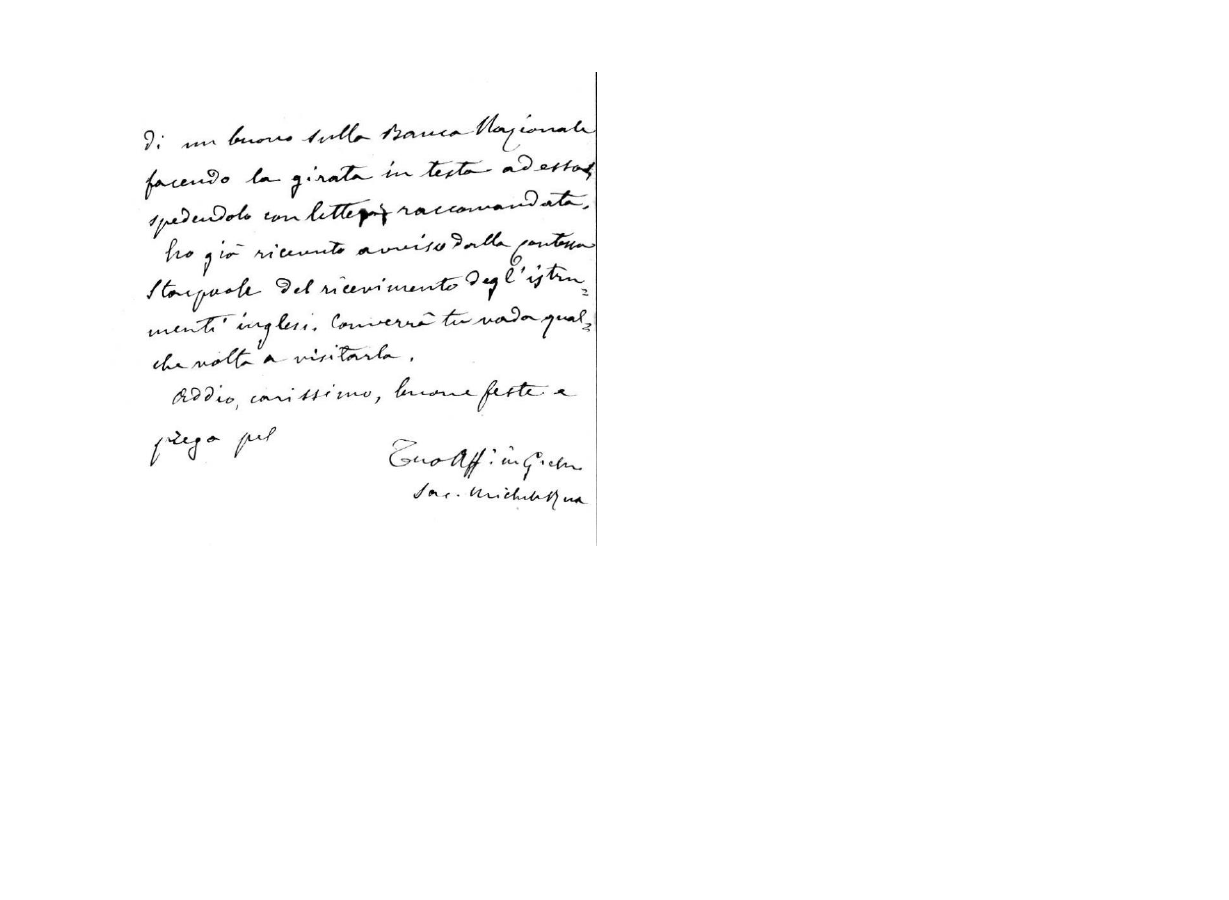 di un buono sulla Banca Nazionale
facendo la girata in testa ad esso e
spedendolo con lettera raccomandata.
Ho già ricevuto avviso dalla contessa
Stacpoole del ricevimento degl'istru=
menti inglesi. Converrà tu vada qual=
che volta a visitarla.
Addio, carissimo, buone feste e
prega pel
Tuo Aff: in G. e M.
Sac. Michele Rua